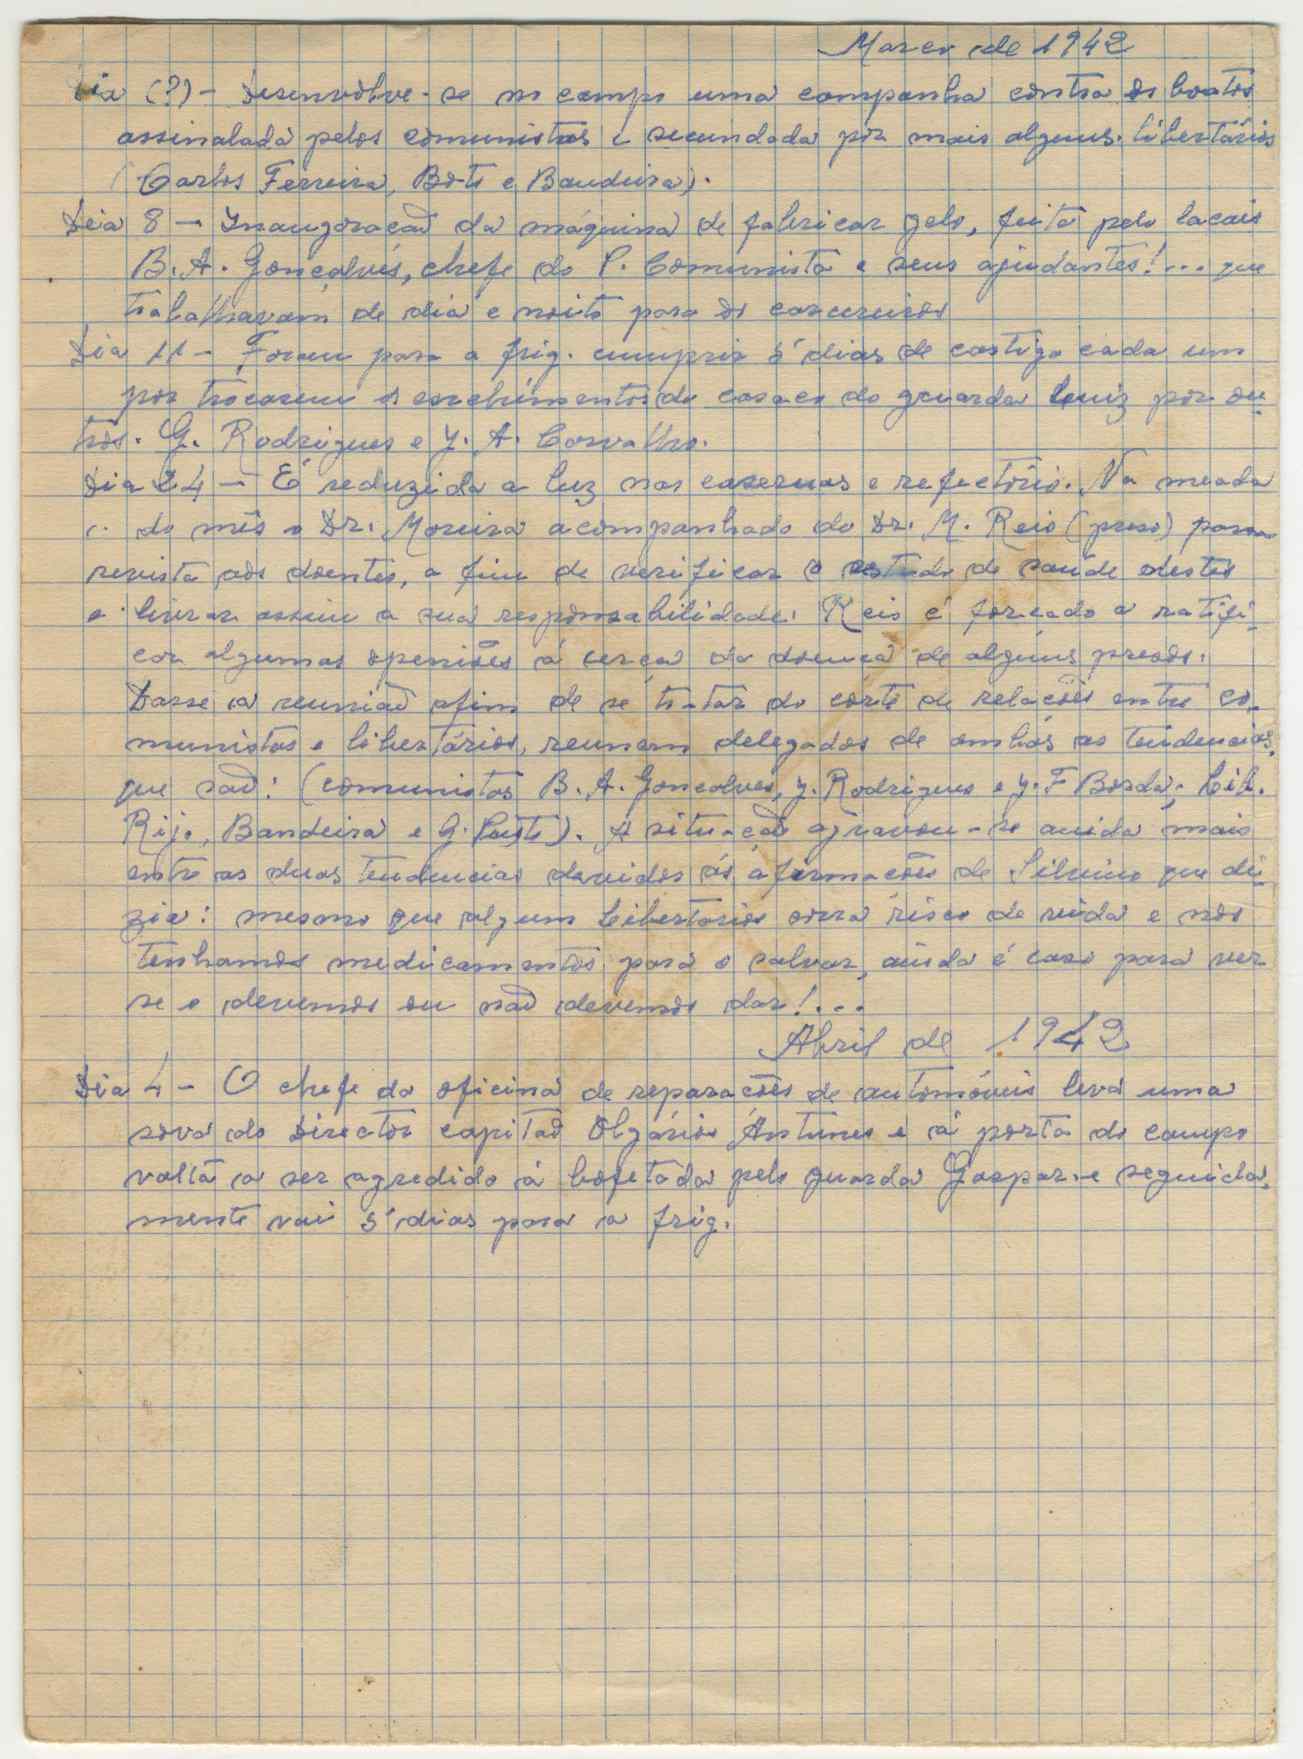 Março de 1942
Dia (?) - Desenvolve-se no campo uma campanha contra os boatos
assinalada pelos comunistas e secundada por mais alguns libertários
(Carlos Ferreira, Boto e Bandeira).
Dia 8 - Inauguracaõ da máquina de fabricar gelo, feita pelo lacais
B. A. Gonçalves, chefe do P. Comunista e seus ajudantes!... que
trabalhavam de dia e noite para os carcereiros
Dia 11 - Foram para a frig. cumprir 5 dias de castigo cada um
por trocarem os enchimentos do casaco do guarda Luiz por ou-
tros. G. Rodrigues e J. A. Carvalho.
Dia 24 - É reduzida a luz nas casernas e refectório. Na meada
do mês o Dr. Moreira acompanhado do Dr. M. Reis (preso) passa
revista aos doentes, a fim de verificar o estado de saúde destes
e livrar assim a sua responsabilidade. Reis é forcado a ratifi-
car algumas openiões á cerca da doenca de alguns presos.
Dasse a reuniaõ afim de se tratar do corte de relacões entre co-
munistas e libertários, reunem delegados de ambas as tendencias,
que saõ: (comunistas B. A. Gonçalves, J. Rodrigues e J. F Borda; Lib.
Rijo, Bandeira e G. ). A situacaõ agravou-se ainda mais
entre as duas tendencias devidos ás afirmacões de Silvino que di-
zia: mesmo que algum Libertários corra risco de vida e nos
tenhamos medicamentos para o salvar, ainda é caso para ver
se o devemos ou naõ devemos dar!...
Abril de 1942
Dia 4 - O chefe da oficina de reparacões de automóveis leva uma
sova do Director capitaõ Olgários Antunes e á porta do campo
volta a ser agredido á bofetada pelo guarda Gaspar e seguida-
mente vai 5 dias para a frig.